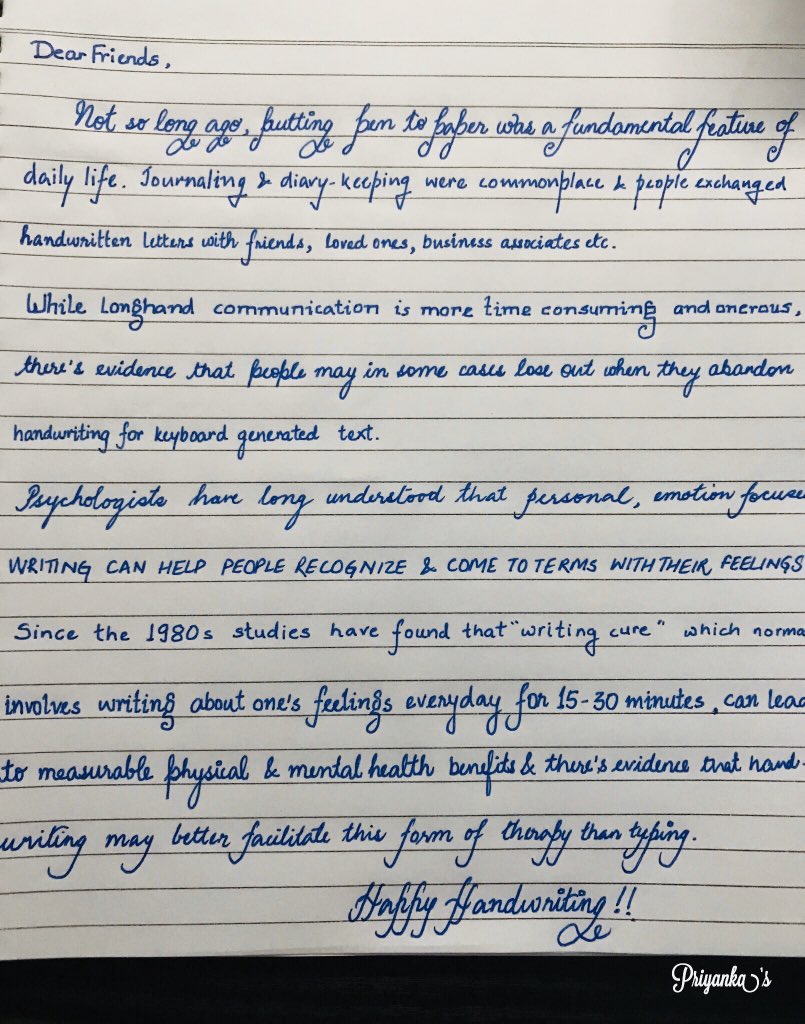 Dear Friends,
Not so long ago, putting pen to paper was a fundamental feature of
daily life. Journaling & diary-keeping were commonplace & people exchanged
handwritten letters with friends, loved ones, business associates etc.
While Longhand communication is more time consuming and onerous,
there's evidence that people may in some cases lose out when they abandon
handwriting for keyboard generated text.
Psychologists have long understood that personal, emotion focuse
WRITING CAN HELP PEOPLE RECOGNIZE & COME TO TERMS WITH THEIR FEELINGS
Since the 1980s studies have found that "writing cure" which norma
involves writing about one's feelings everyday for 15-30 minutes, can lead
to measurable physical & mental health benefits & there's evidence that hand-
writing may better facilitate this form of therapy than typing.
Happy Handwriting!!
Priyanka's